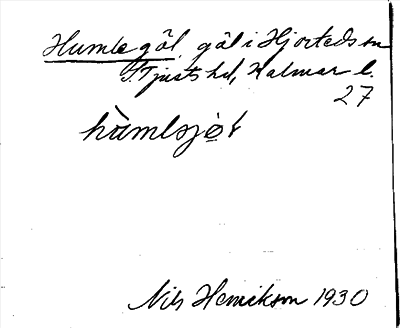 Humlegöl, göl i Hjorteds sn
S. Tjusts hd, Kalmar l.
27
hùmlsjøɫ
Nils Henrikson 1930